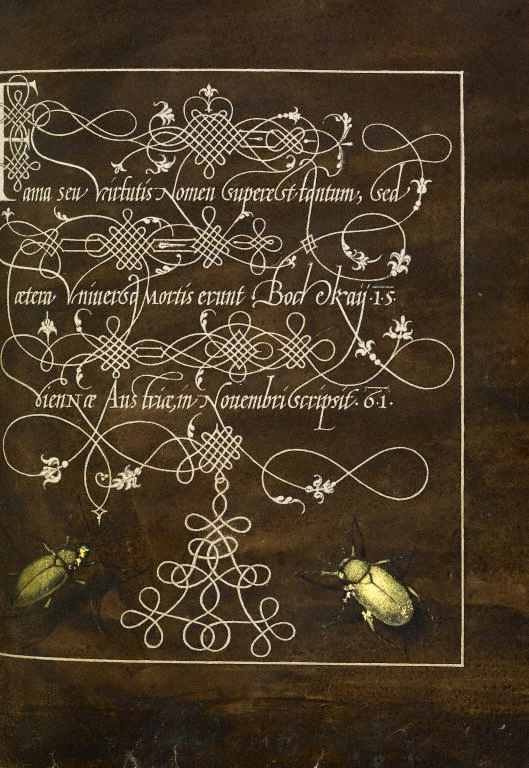 Fama seu Virtutis Nomen SupereSt tantum, Sed
ætera VniuerSa Mortis erunt. Bocskaÿ .15.
VienNæ AusTriæ, in Nouembri Scripsit. 61.